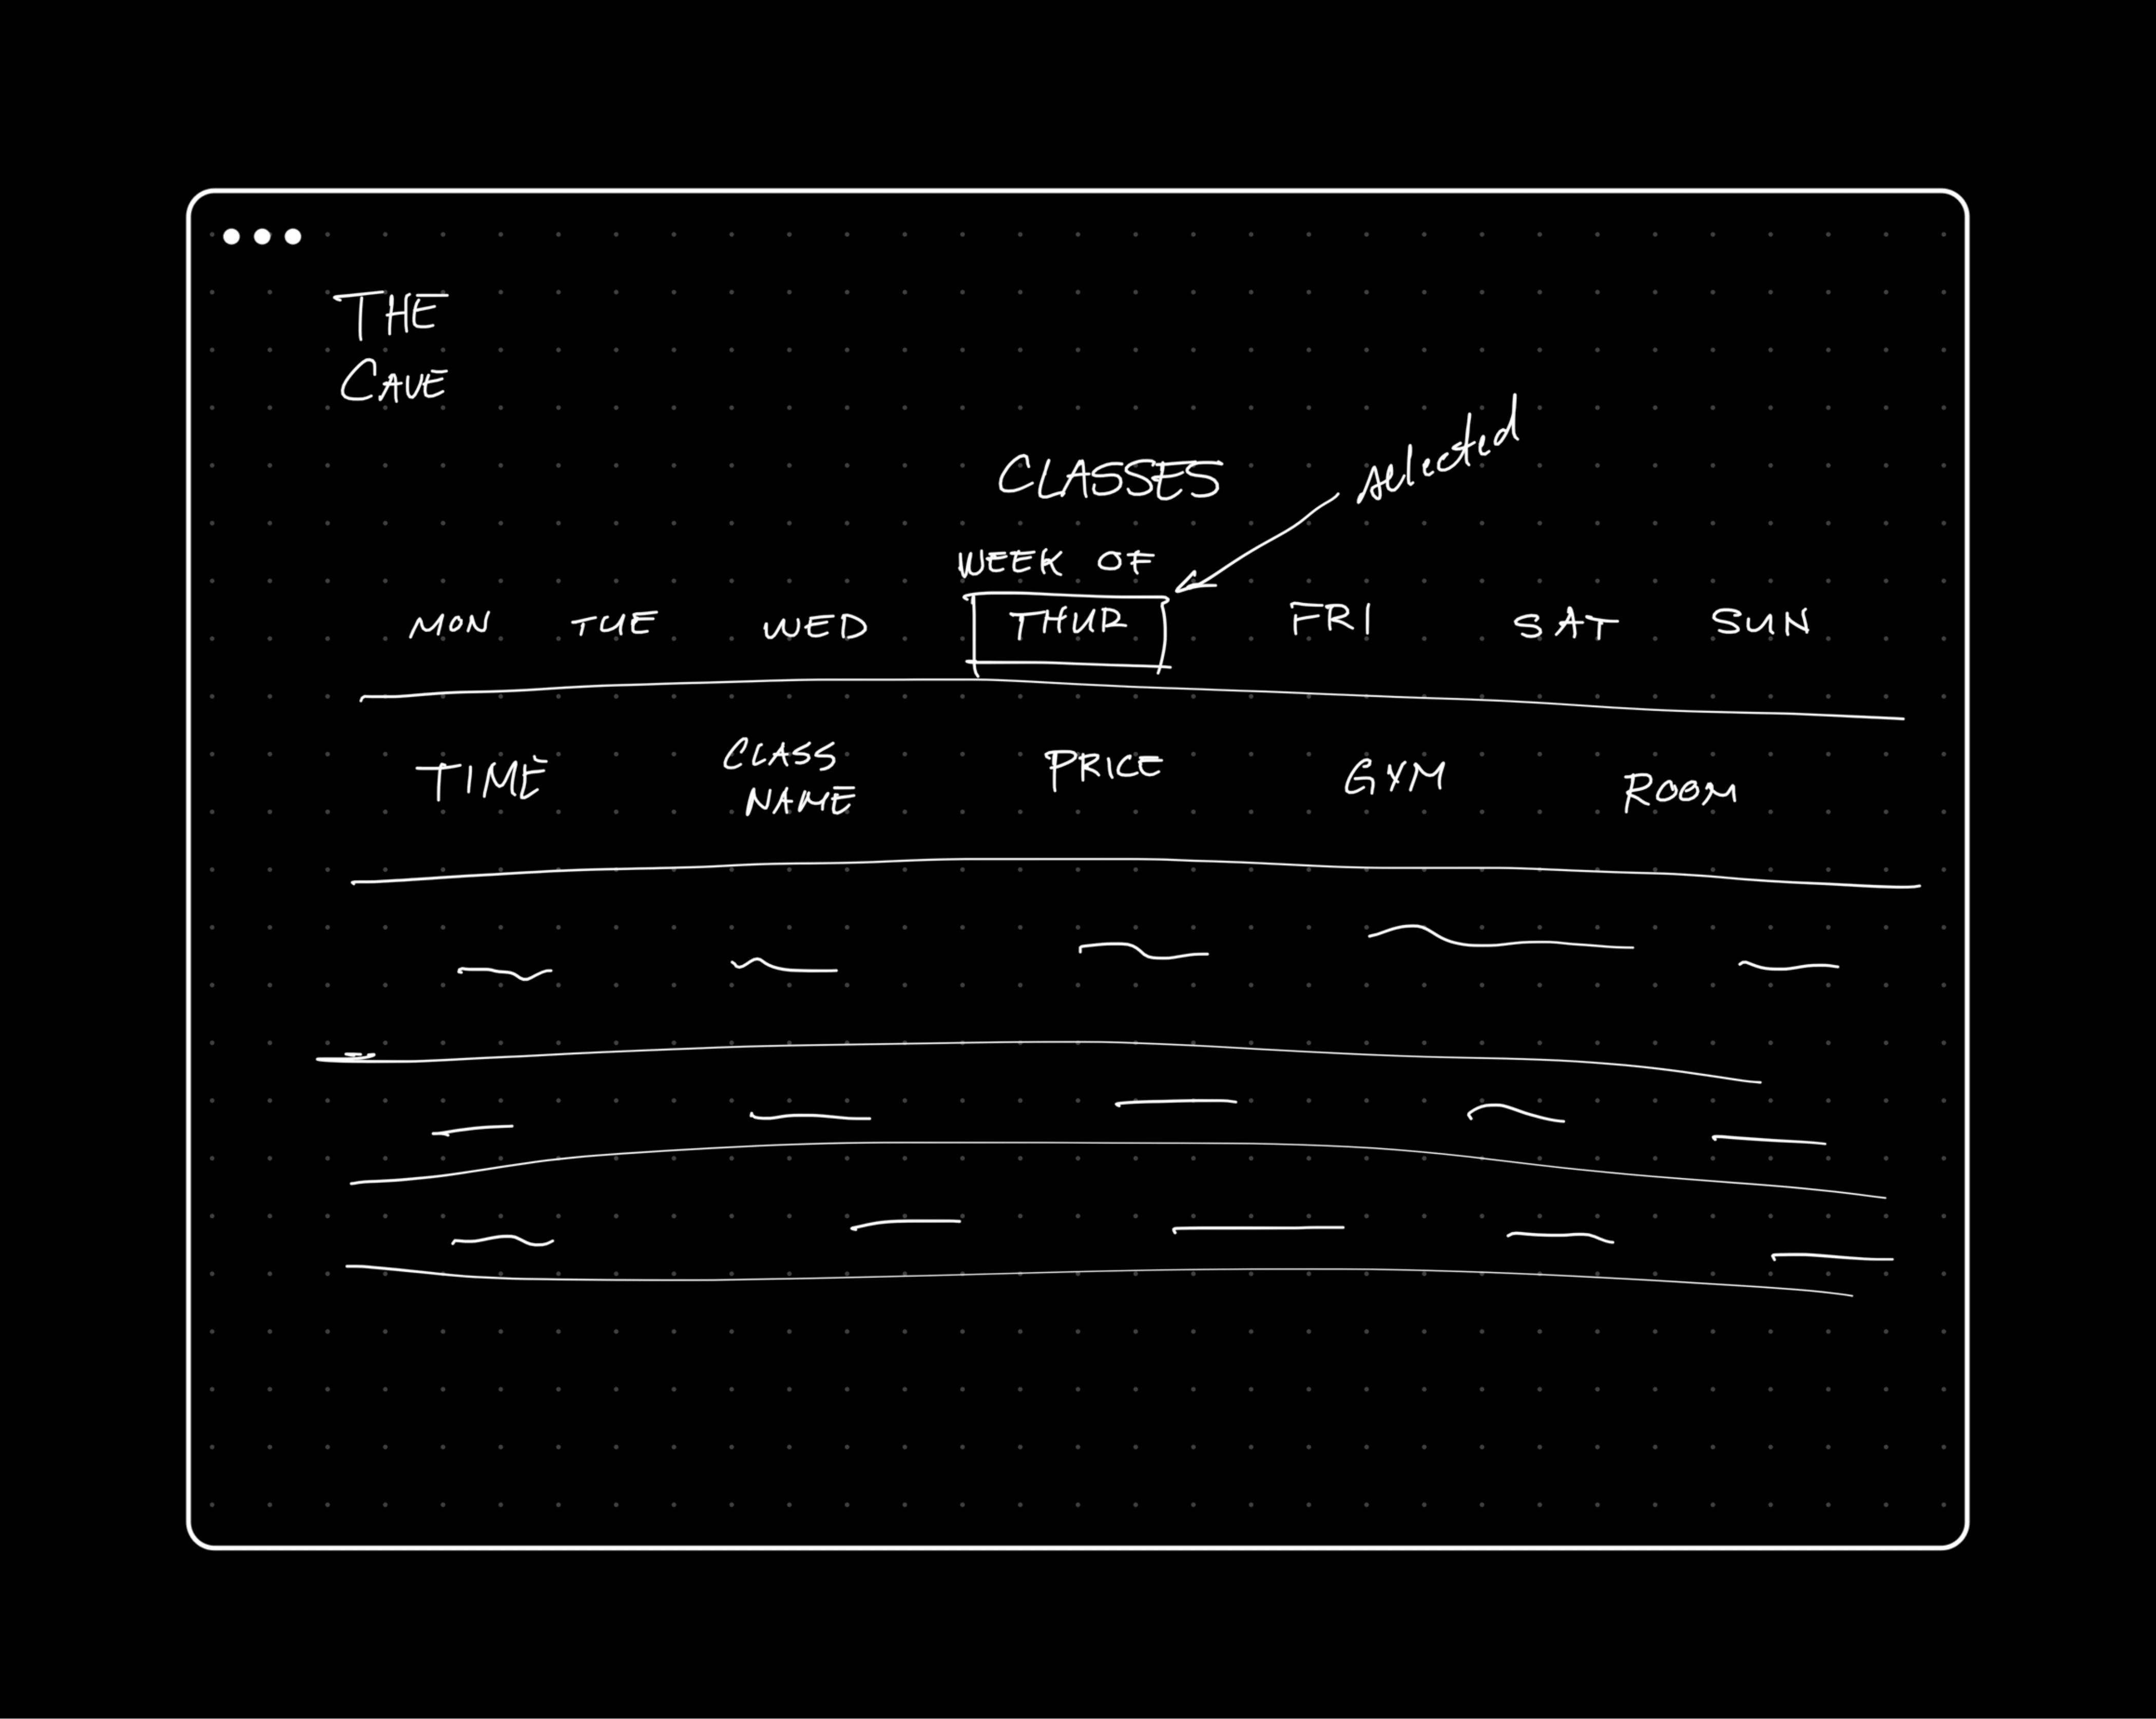 THE
CAVE
selected
CLASSES
WEEK OF
MON TUE WED THUR FRI SAT SUN
TIME CLASS NAME PRICE GYM ROOM